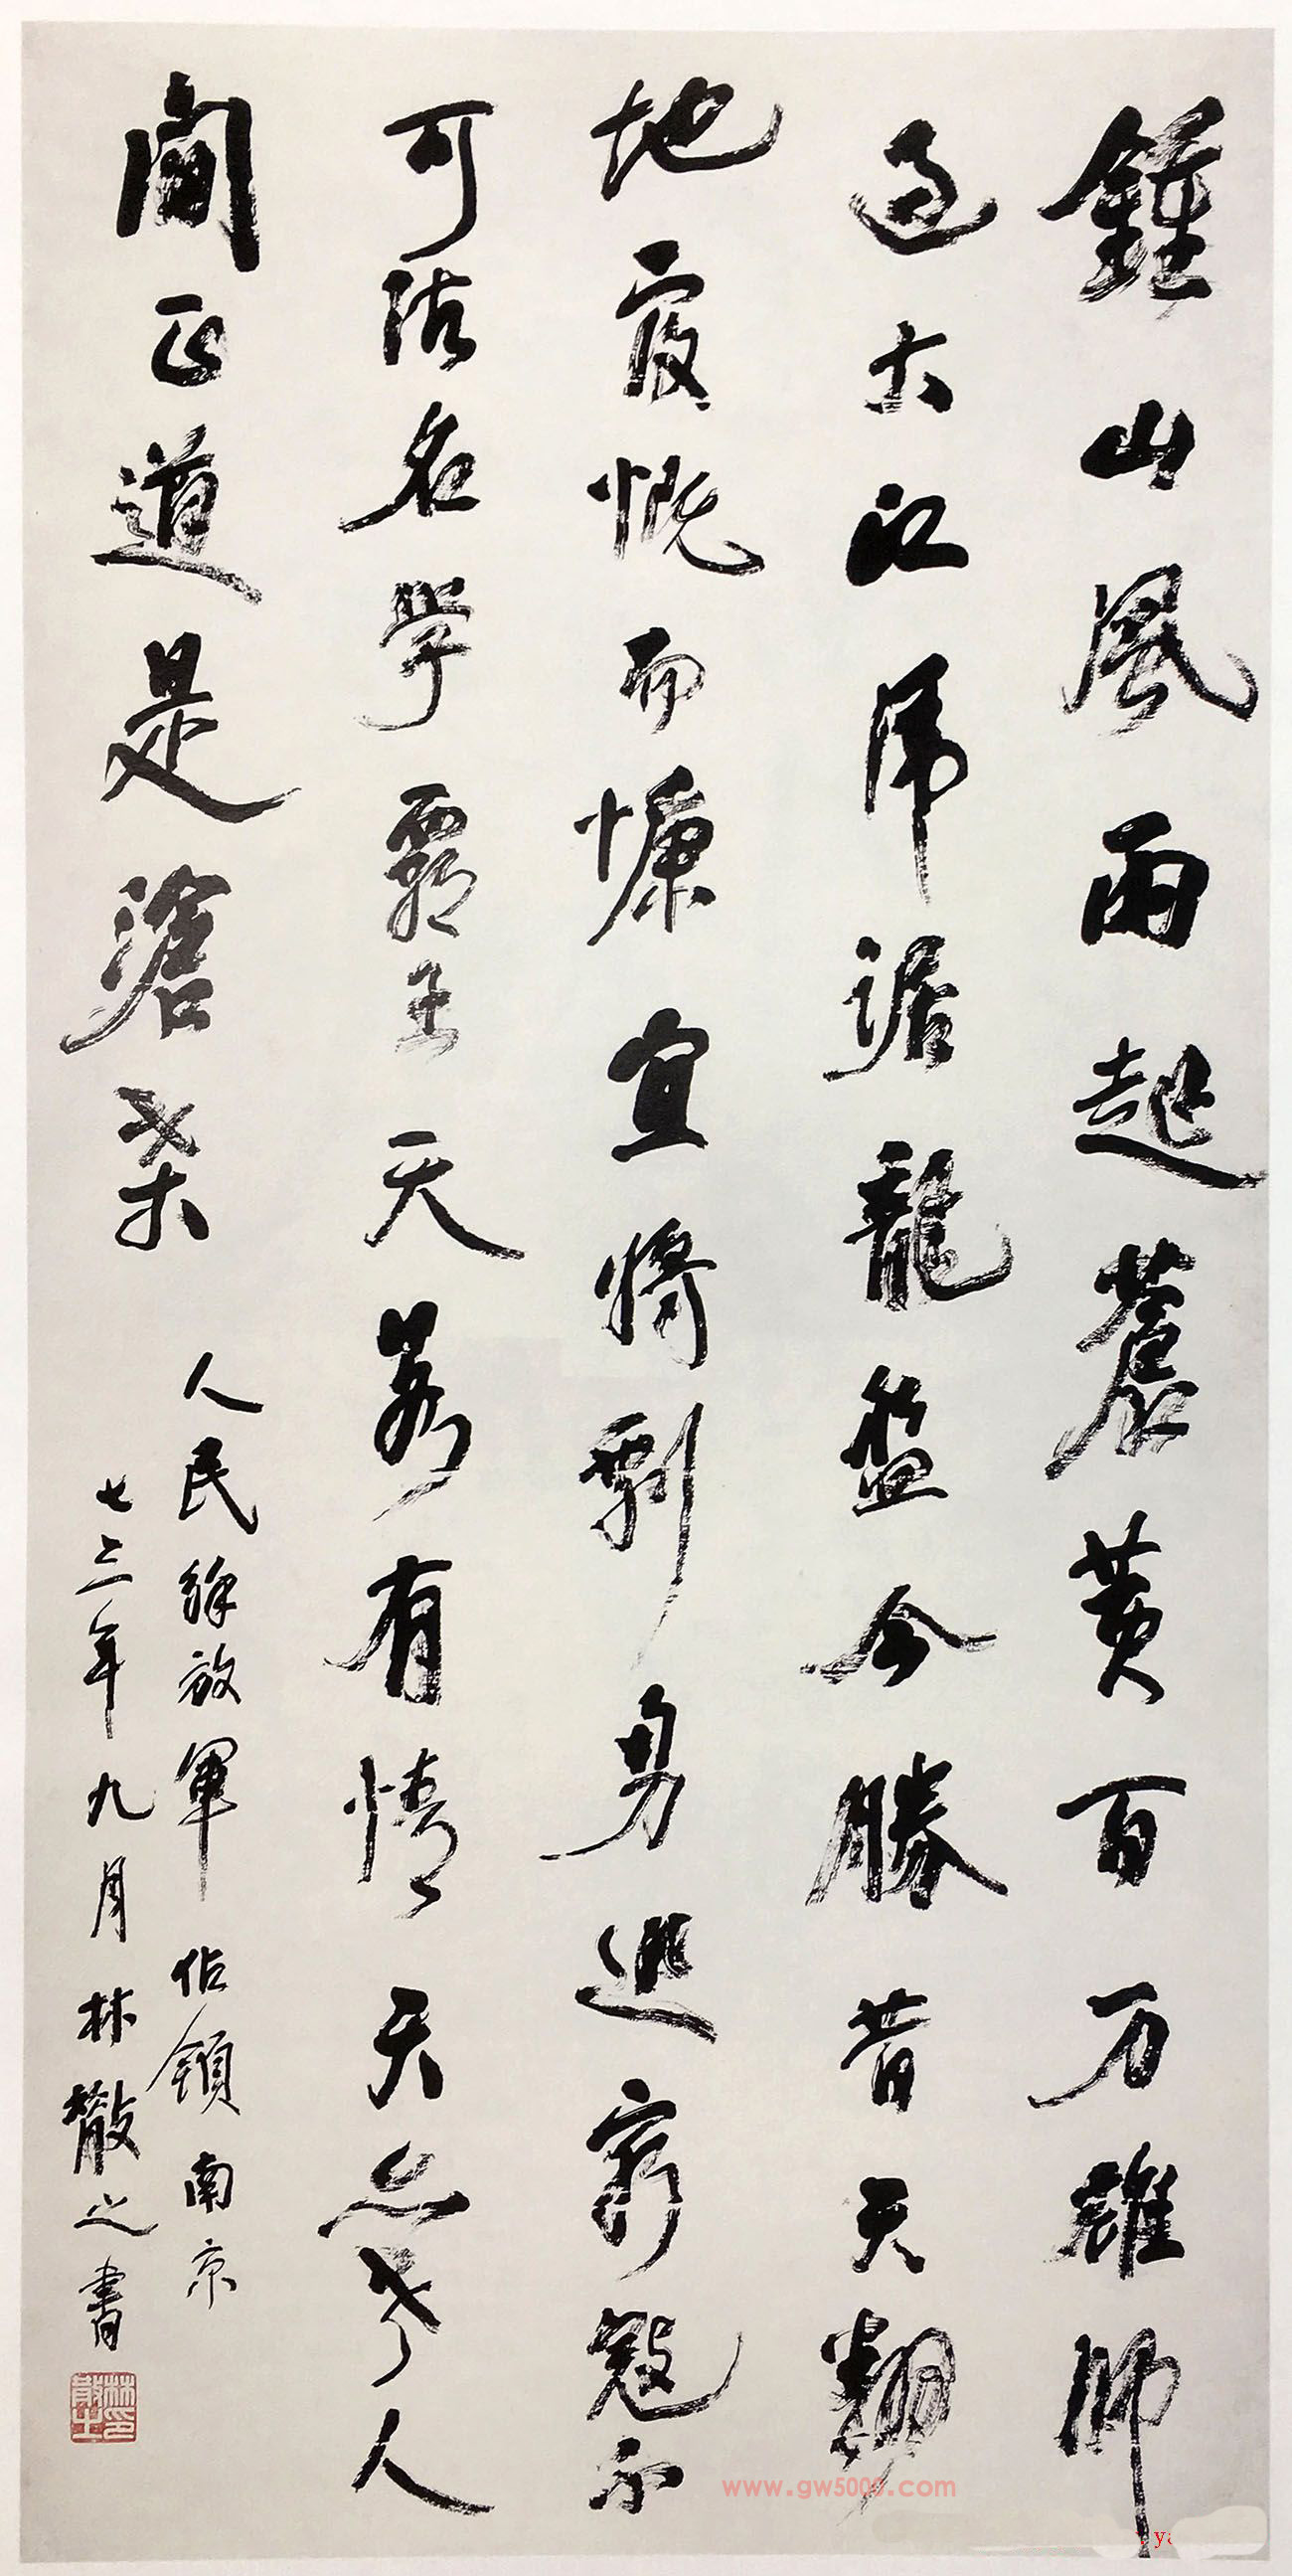 鍾山風雨起蒼黄百万雄師
過大江虎踞龍盘今勝昔天翻
地覆慨而慷宜將剩勇追窮寇不
可沽名學霸王天若有情天亦老人
間正道是滄桑
人民解放軍佔領南京
七三年九月林散之書
林散之印
www.gw5000.com